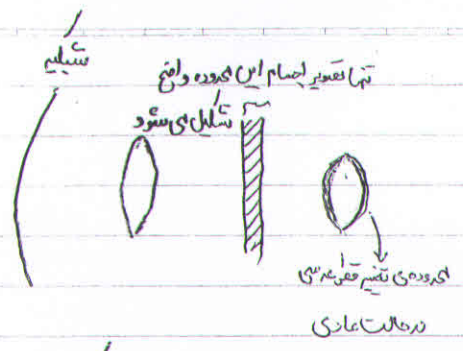 شبکیه
تنها تصویر اجسام این محدوده واضح
تشکیل می‌شود
محدوده‌ی تغییر قطر عدسی
در حالت عادی